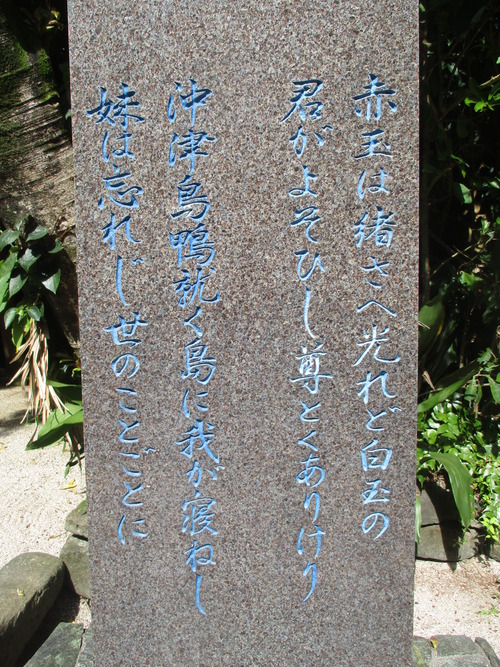 赤玉は緒さへ光れど白玉の
君がよそひし尊とくありけり
沖津鳥鴨就く島に我が寝ねし
妹は忘れじ世のことごとに